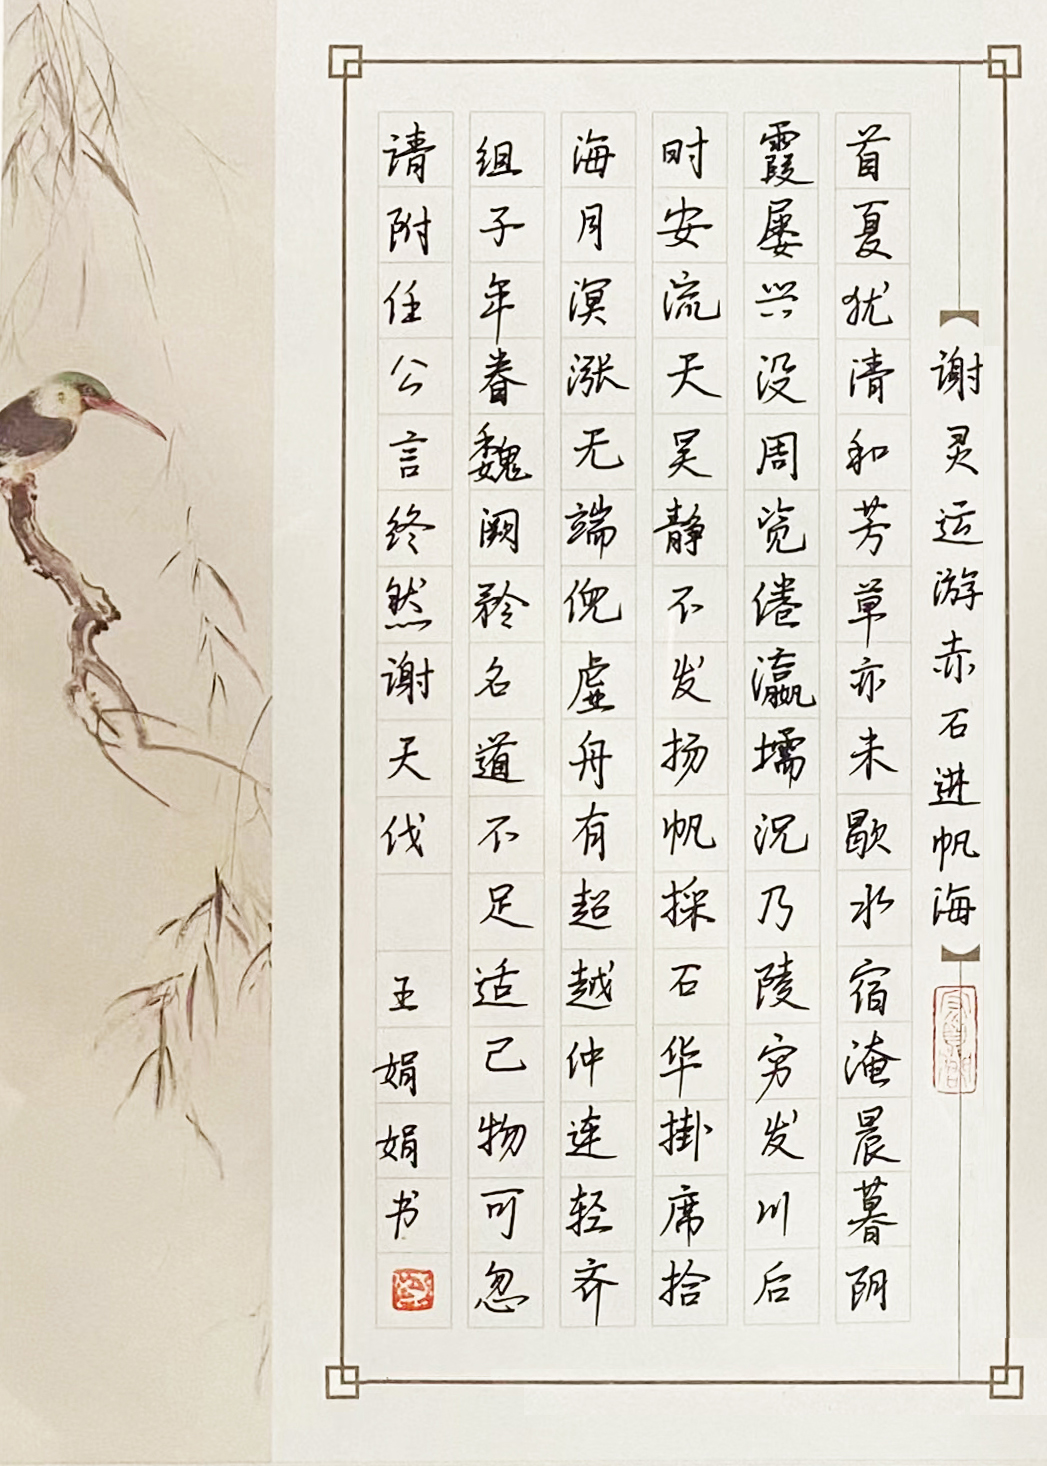 谢灵运游赤石进帆海
首夏犹清和芳草亦未歇水宿淹晨暮阴
霞屡兴没周览倦瀛壖况乃陵穷发川后
时安流天吴静不发扬帆採石华掛席拾
海月溟涨无端倪虚舟有超越仲连轻齐
组子年眷魏阙矜名道不足适己物可忽
请附任公言终然谢天伐
王娟娟书